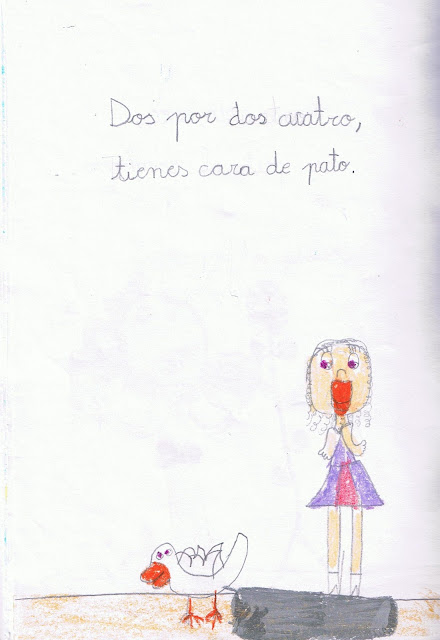 Dos por dos cuatro,
tienes cara de pato.